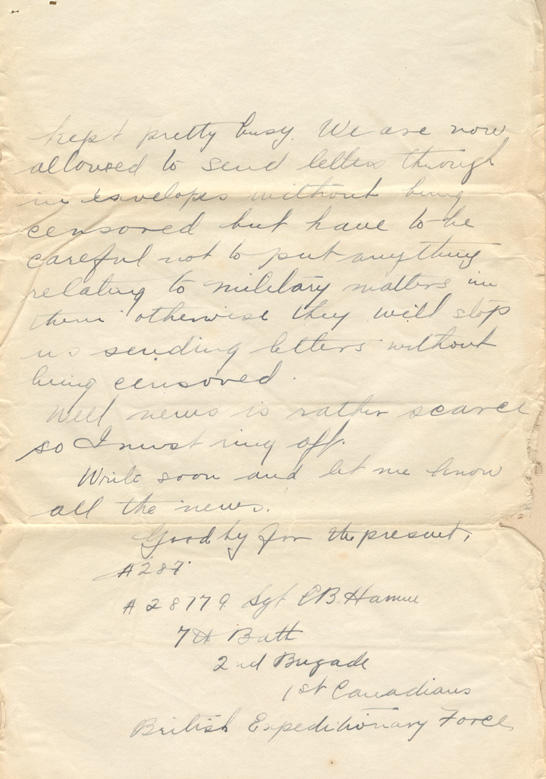 kept pretty busy. We are now
allowed to send letters through
in envelopes without being
censored but have to be
careful not to put anything
relating to military matters in
them otherwise they will stop
us sending letters without
being censored.
Well news is rather scarce
so I must ring off.
Write soon and let me know
all the news.
Goodby for the present.
A287
A28779 Sgt
7th Batt
2nd Brigade
1st Canadians
British Expeditionary Force